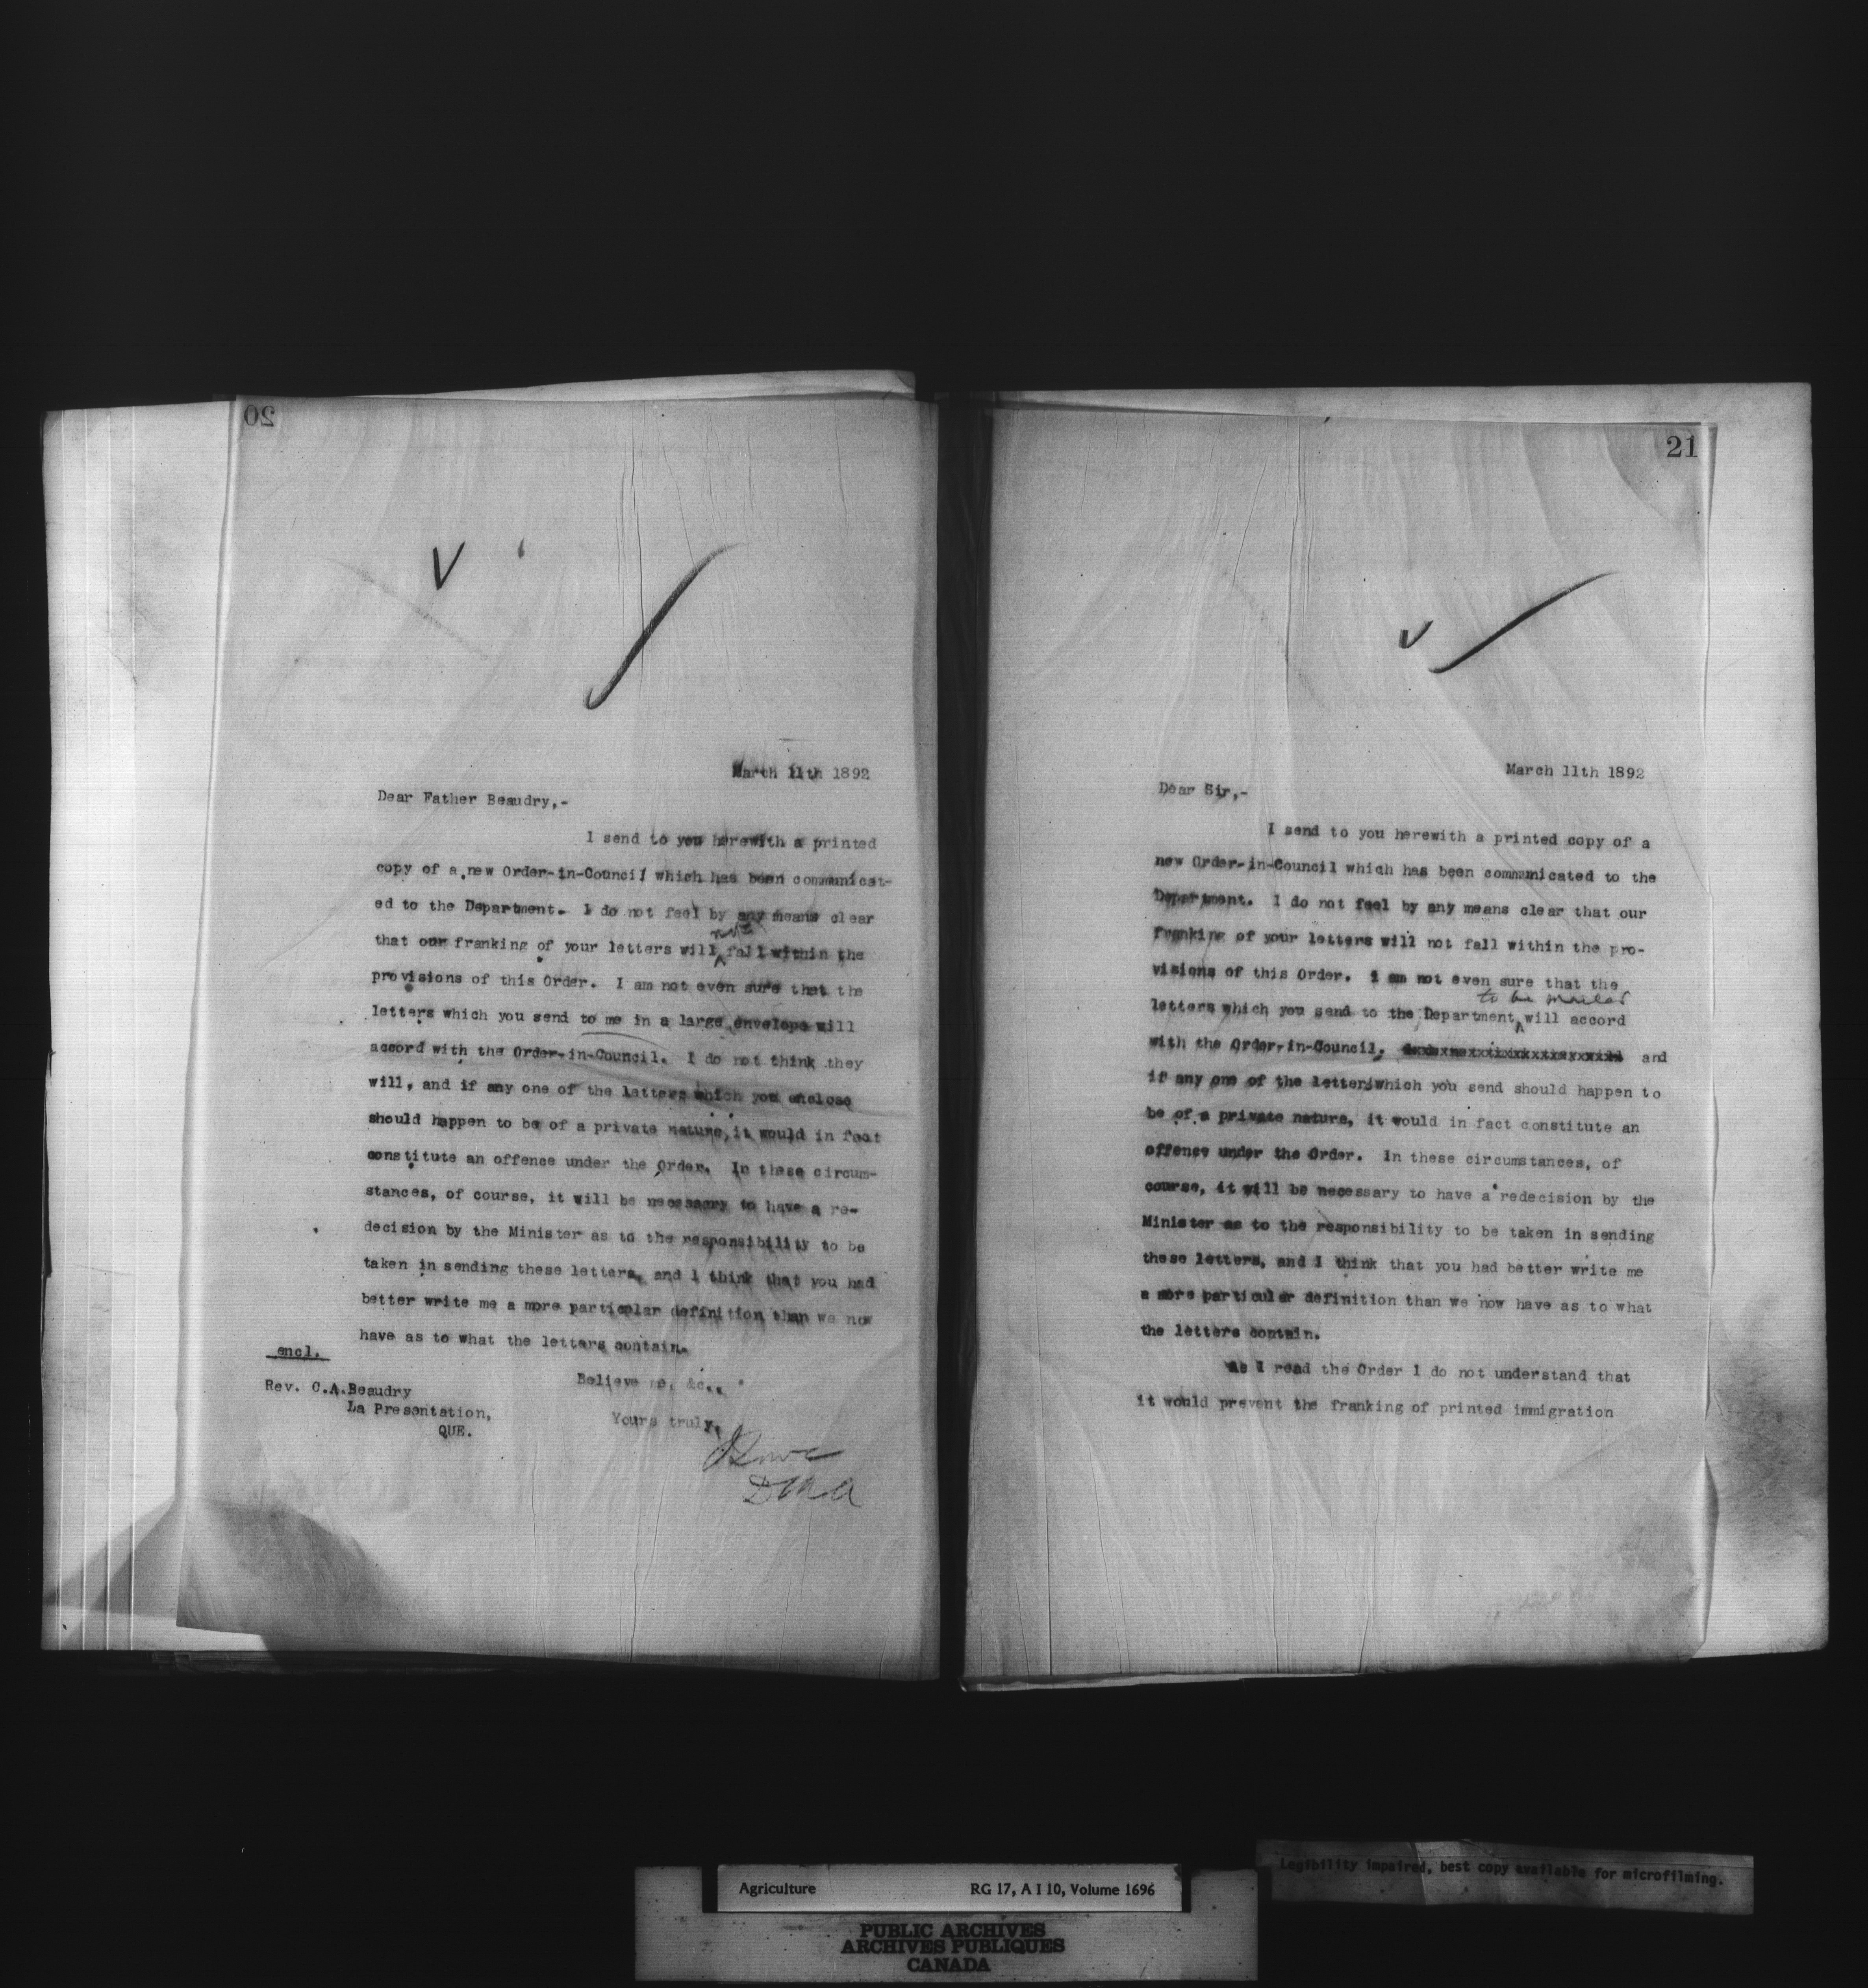 20
March 11th 1892
Dear Father Beaudry,-
I send to you herewith a printed
copy of a new Order-in-Council which has been communicat-
ed to the Department. I do not feel by any means clear
not
that our franking of your letters will ^ fall within the
provisions of this Order. I am not even sure that the
letters which you send to me in a large envelope will
accord with the Order-in-Council. I do not think they
will, and if any one of the letters which you enclose
should happen to be of a private nature, it would in fact
constitute an offence under the Order. In these circum-
stances, of course, it will be necessary to have a re-
decision by the Minister as to the responsibility to be
taken in sending these letters, and I think that you had
better write me a more particular definition than we now
have as to what the letters contain.
encl.
Believe me, &c.,
Rev. C.A.Beaudry
La Presentation,
QUE.
Yours truly,
21
March 11th 1892
Dear Sir,-
I send to you herewith a printed copy of a
new Order-in-Council which has been communicated to the
Department. I do not feel by any means clear that our
franking of your letters will not fall within the pro-
visions of this Order. I am not even sure that the
to be mailed
letters which you send to the Department ^ will accord
with the Order-in-Council, and
if any one of the letters which you send should happen to
be of a private nature, it would in fact constitute an
offence under the Order. In these circumstances, of
course, it will be necessary to have a redecision by the
Minister as to the responsibility to be taken in sending
these letters, and I think that you had better write me
a more particular definition than we now have as to what
the letters contain.
As I read the Order I do not understand that
it would prevent the franking of printed immigration
Legibility impaired, best copy available for microfilming.
Agriculture RG 17, A I 10, Volume 1696
PUBLIC ARCHIVES
ARCHIVES PUBLIQUES
CANADA